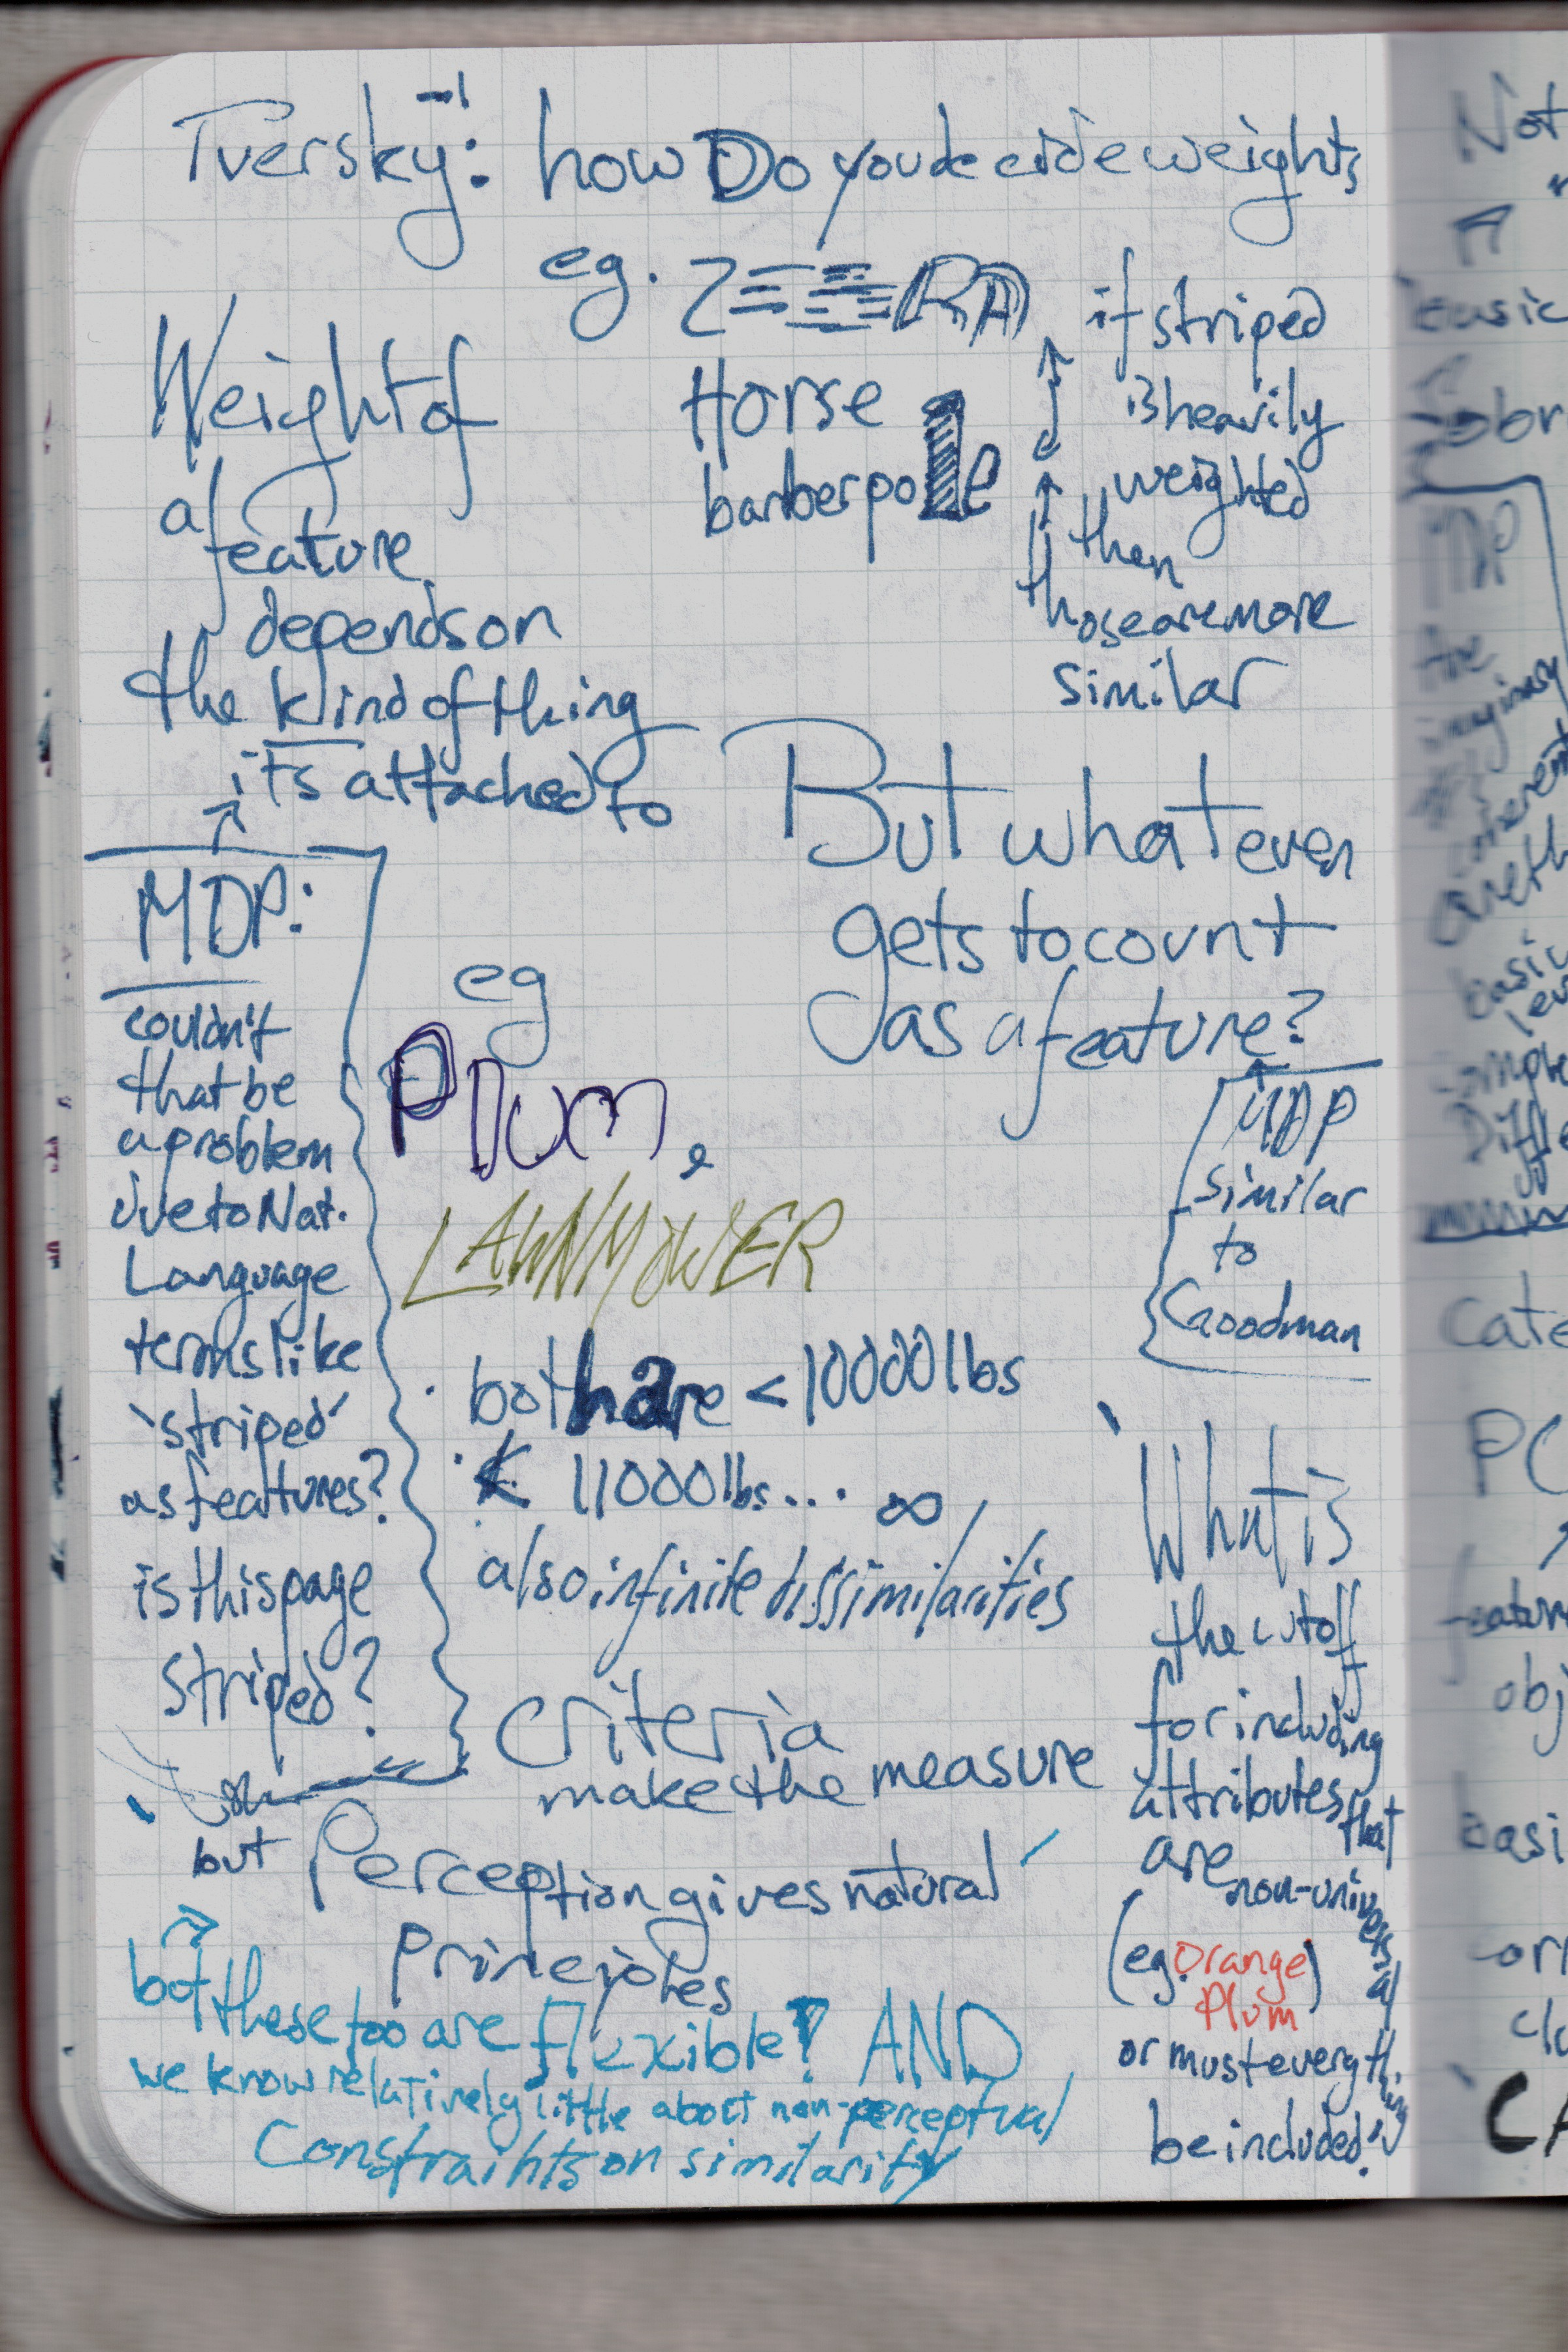 Tversky: how Do you decide weights
eg. ZEEBRA
Horse
barberpole
if striped
is heavily
weighted
then
those are more
similar
Weight of
a feature
depends on
the kind of thing
its attached to
But what even
gets to count
as a feature?
MDP
similar
to
Goodman
MDP:
couldn't
that be
a problem
due to Nat.
Language
terms like
'striped'
as features?
is this page
striped?
eg
Plum,
LAWNMOWER
both are < 10000 lbs
< 11000 lbs... ∞
also infinite dissimilarities
criteria
make the measure
but Perception gives natural
principles
What is
the cutoff
for including
attributes that
are non-universal
(eg. Orange
Plum)
or must everything
be included?
but these too are flexible? AND
we know relatively little about non-perceptual
Constraints on similarity
Not
PC
obj
basi